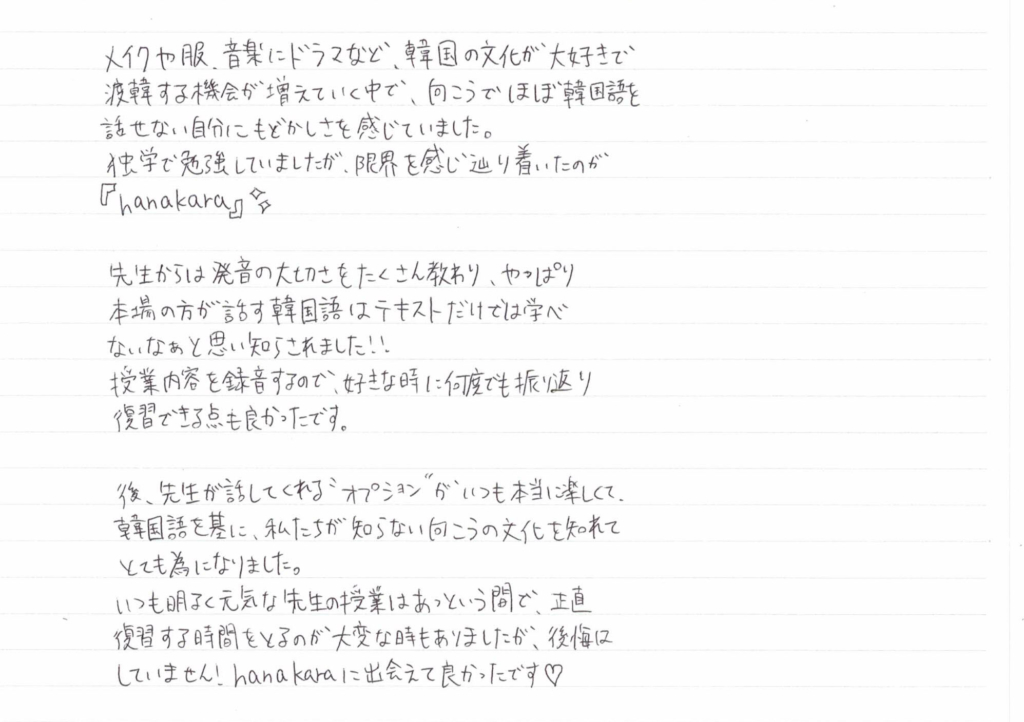 メイクや服、音楽にドラマなど、韓国の文化が大好きで
渡韓する機会が増えていく中で、向こうでほぼ韓国語を
話せない自分にもどかしさを感じていました。
独学で勉強していましたが、限界を感じ辿り着いたのが
『hanakara』
先生からは発音の大切さをたくさん教わり、やっぱり
本場の方が話す韓国語はテキストだけでは学べ
ないなぁと思い知らされました!!
授業内容を録音するので、好きな時に何度でも振り返り
復習できる点も良かったです。
後、先生が話してくれる“オプション”がいつも本当に楽しくて、
韓国語を基に、私たちが知らない向こうの文化を知れて
とても為になりました。
いつも明るく元気な先生の授業はあっという間で、正直
復習する時間をとるのが大変な時もありましたが、後悔は
していません!hanakaraに出会えて良かったです♡